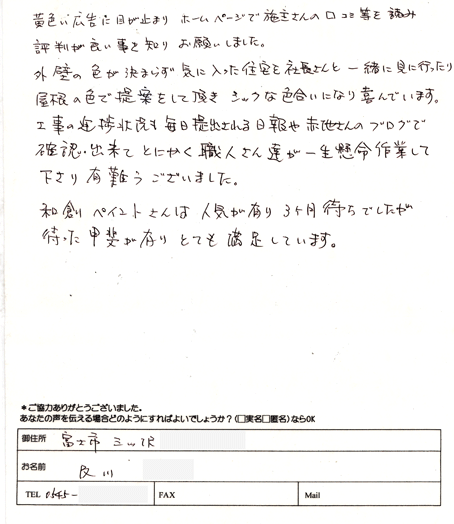 黄色い広告に目が止まり ホームページで施主さんの口コミ等を読み
評判が良い事を知り お願いしました。
外壁の色が決まらず 気に入った住宅を社長さんと一緒に見に行ったり
屋根の色で提案をして頂き シックな色合いになり喜んでいます。
工事の進捗状況も毎日提出される日報や赤池さんのブログで
確認出来て とにかく 職人さん達が一生懸命作業して
下さり 有難うございました。
和創ペイントさんは 人気が有り 3ヶ月待ちでしたが
待った甲斐が有り とても満足しています。
*ご協力ありがとうございました。
あなたの声を伝える場合どのようにすればよいでしょうか?(□実名□匿名)ならOK
御住所 富士市 三ツ沢
お名前 及川
TEL 0545- FAX Mail